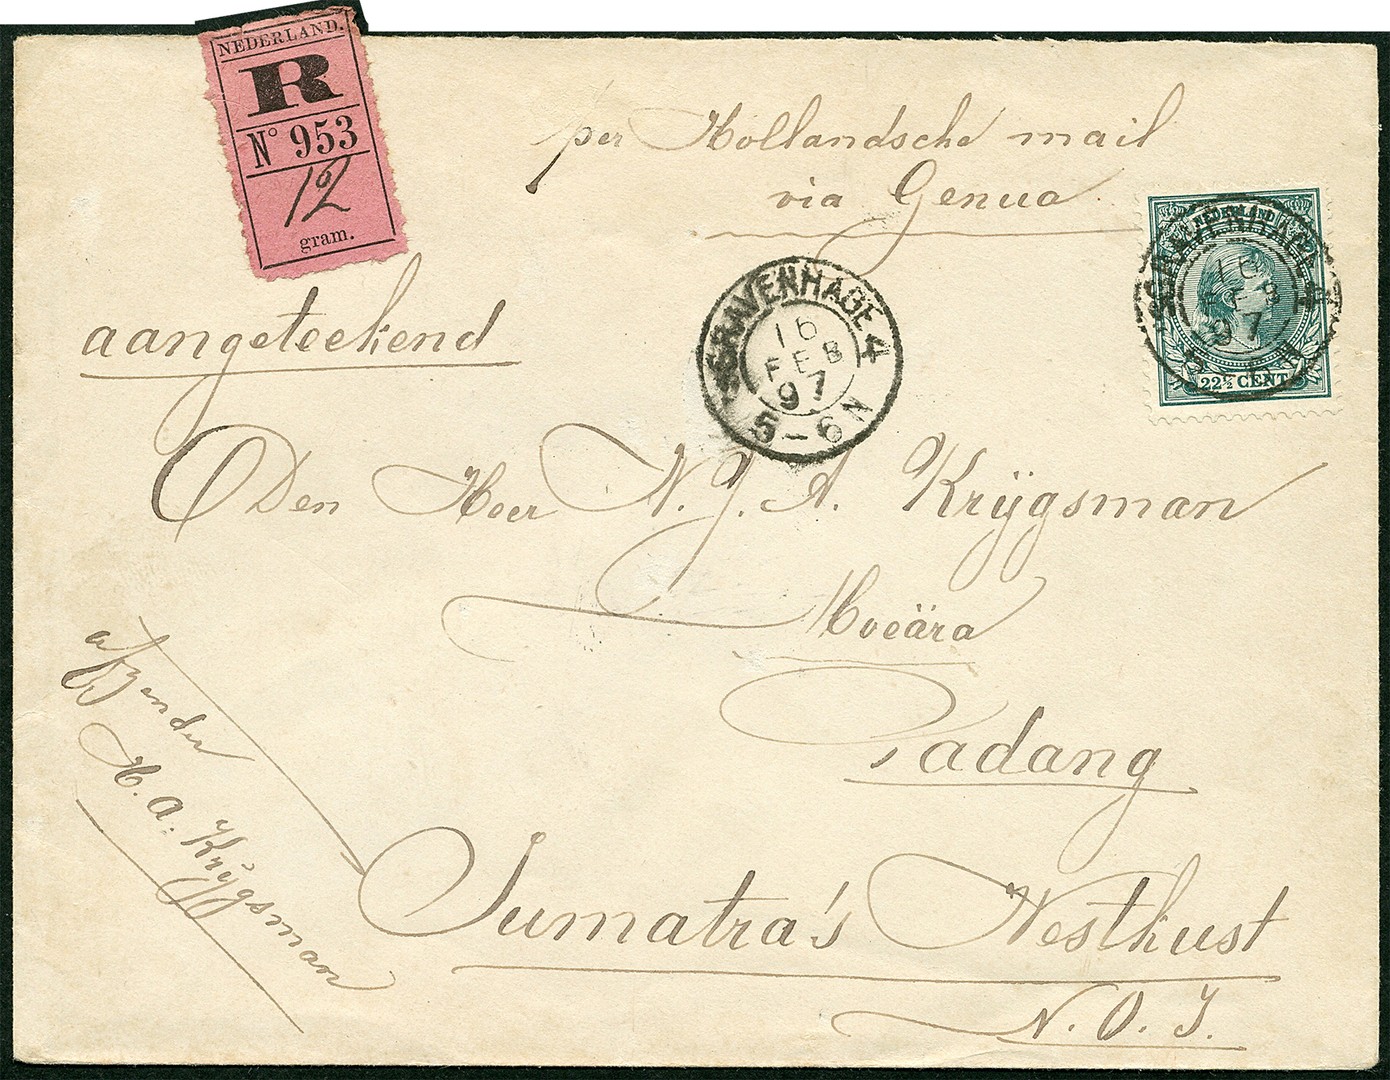 NEDERLAND.
R
No 953
12
gram.
per Hollandsche mail
via Genua.
NEDERLAND
22½ CENT
'SGRAVENHAGE 4
16
FEB
97
'SGRAVENHAGE 4
16
FEB
97
5-6N
aangeteekend
Den Heer N. J. A. Krijgsman
Moeära
Padang
Sumatra's Westkust
N. O. I.
afzender
H. A. Krijgsman